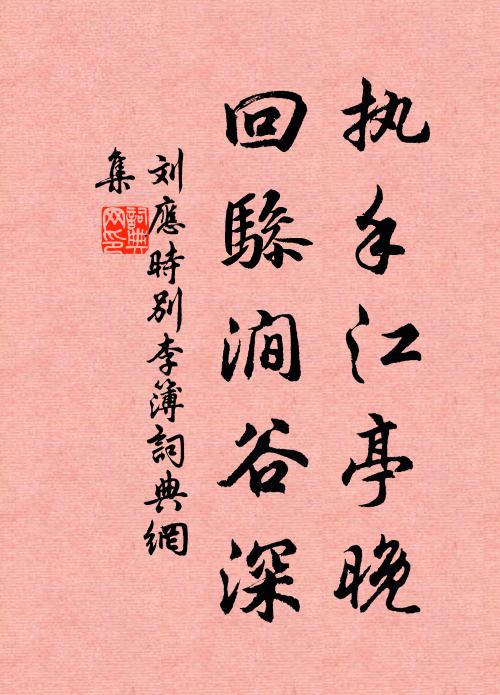 执手江亭晚
回驂涧谷深
刘應時别李簿詞典網
集
詞典
网印